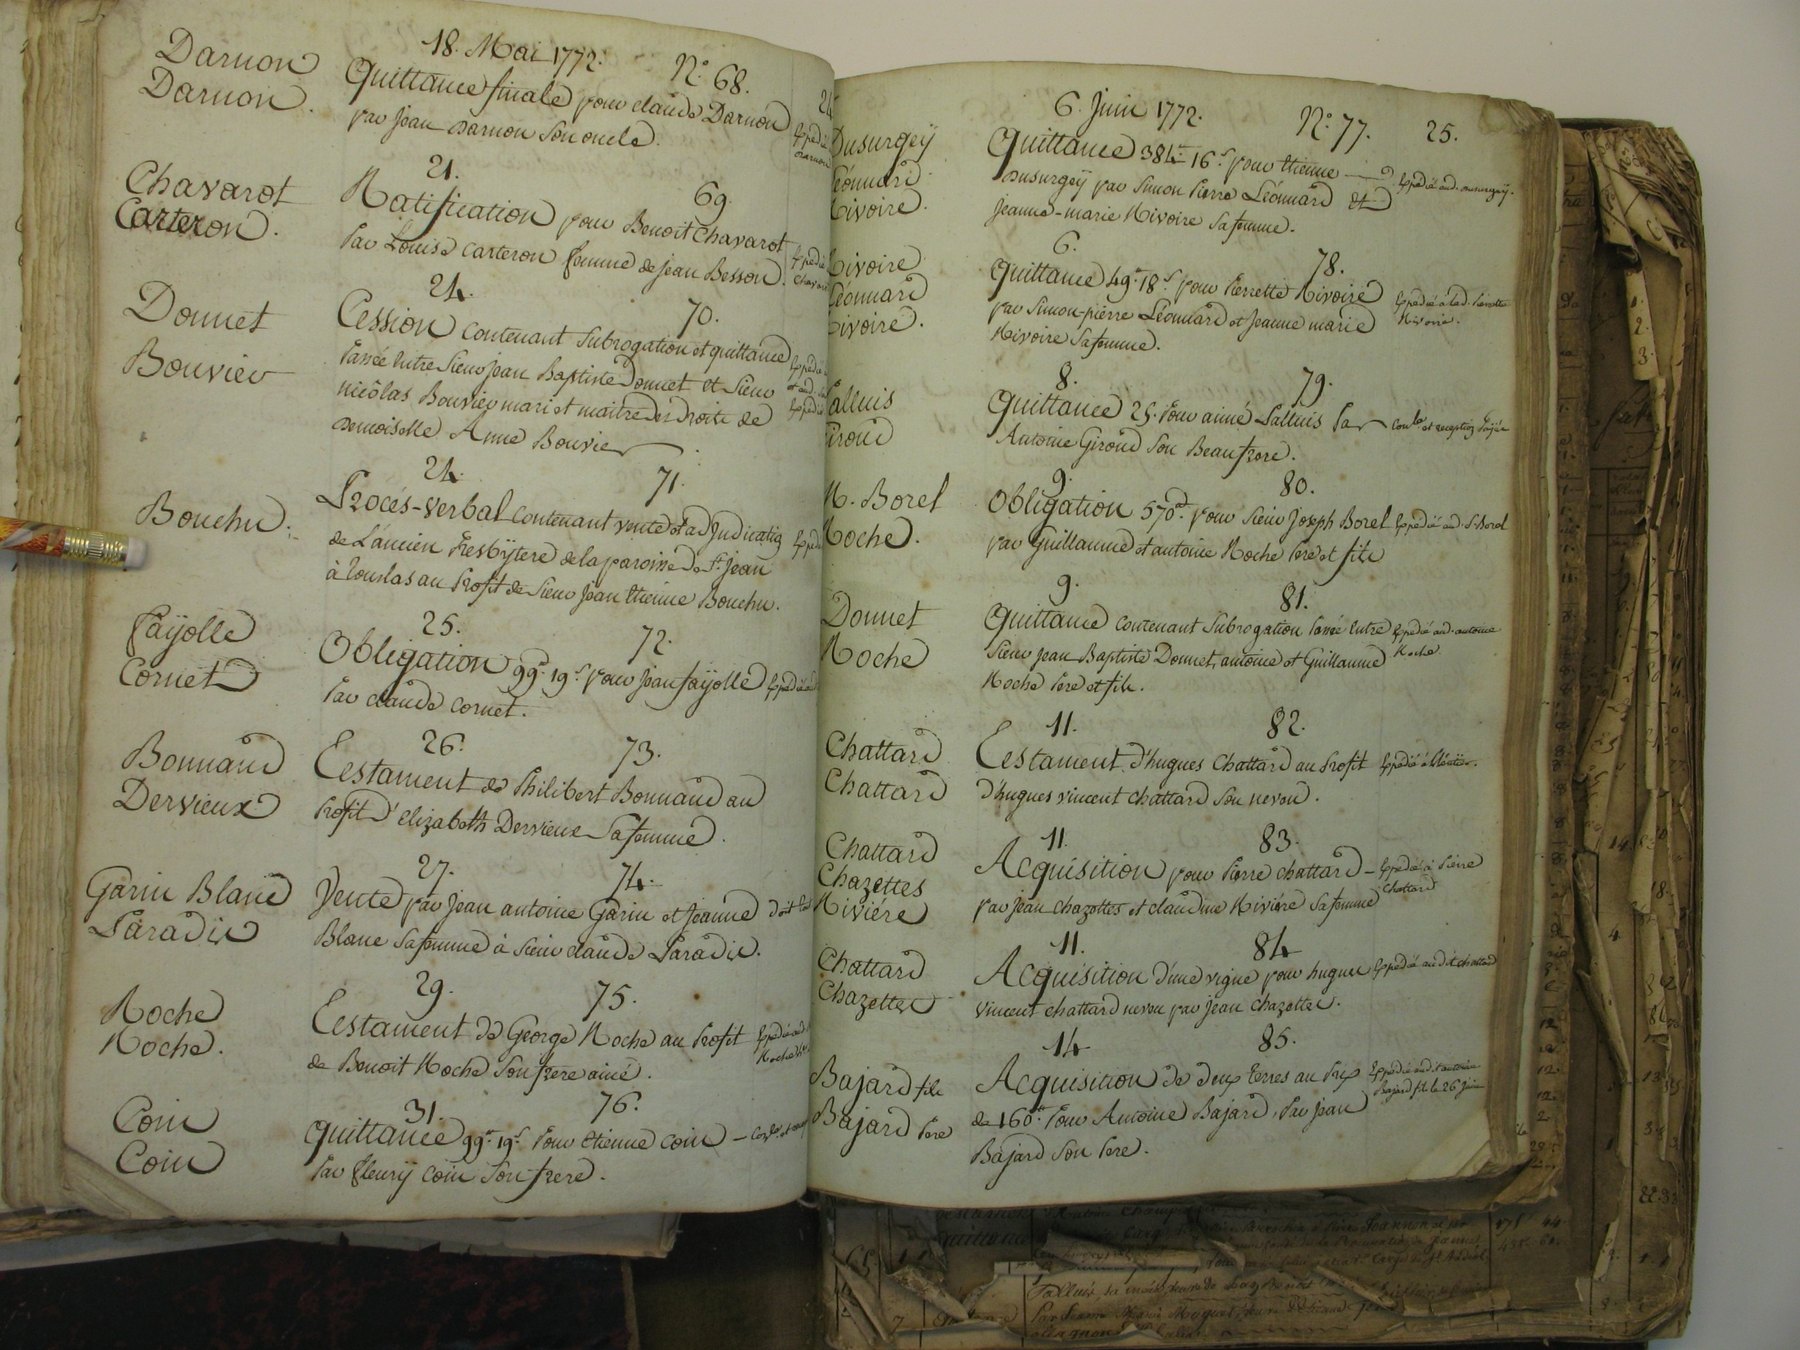 18. Mai 1772. N.° 68.
Darnon
Darnon.
Quittance finale pour claude Darnon
par Jean Darnon son oncle.
21. 69.
Chavarot
Carteron.
Ratification pour Benoit Chavarot
Par Louise Carteron femme de Jean Besson.
24. 70.
Donnet
Bouvier
Cession contenant Subrogation et quittance
Passée Entre Sieur Jean Baptiste Donnet et Sieur
nicolas Bouvier mari et maitre des Droits de
Demoiselle Anne Bouvier.
24. 71.
Bouchu.
Procés-verbal contenant vente et adjudication
de L'ancien Presbÿtere de la paroisse de St. Jean
à Touslas au Profit de Sieur Jean Etienne Bouchu.
25. 72.
Faÿolle
Cornet
Obligation 99.# 19.s pour Jean faÿolle
Par claude cornet.
26. 73.
Bonnand
Dervieux
Testament de Philibert Bonnand au
Profit d'Elizabeth Dervieux Sa femme.
27. 74.
Garin Blanc
Paradis
Vente par Jean antoine Garin et Jeanne
Blanc Sa femme à Sieur claude Paradis.
29. 75.
Roche
Roche.
Testament de George Roche au Profit
de Benoit Roche Son frere ainé.
31. 76.
Coin
Coin
Quittance 99.# 19.s Pour Etienne Coin
Par fleurÿ Coin Son frere.
6. Juin 1772. N.° 77. 25.
Dusurgeÿ
Léonnard
Rivoire.
Quittance 384.# 16.s pour Etienne Expedié aud. Dusurgeÿ.
Dusurgeÿ par Simon Pierre Léonnard et
Jeanne-marie Rivoire Sa femme.
6. 78.
Rivoire
Léonnard
Rivoire.
Quittance 49.# 18.s pour Pierrette Rivoire Expedié a lad. Pierrette
Rivoire.
par Simon-pierre Léonnard et Jeanne marie
Rivoire Sa femme.
8. 79.
Lalluis
Giroud
Quittance 25. Pour aimé Lalluis Par
Antoine Giroud Son Beaufrere.
9. 80.
N. Borel
Roche.
Obligation 570.# pour Sieur Joseph Borel Expedié aud. S. Borel
par Guillaume et antoine Roche Pere et fils
9. 81.
Donnet
Roche
Quittance contenant Subrogation Passée Entre Expedié aud. antoine
Roche
Sieur Jean Baptiste Donnet, antoine et Guillaume
Roche Pere et fils.
11. 82.
Chattard
Chattard
Testament d'hugues Chattard au Profit Expedié à l'héritier.
d'hugues vincent Chattard Son neveu.
11. 83.
Chattard
Chazettes
Riviére
Acquisition pour Pierre chattard Expedié à Pierre
Chattard
par Jean Chazettes et claudine Riviére Sa femme
11. 84
Chattard
Chazettes
Acquisition d'une vigne pour hugues Expedié audit chattard
vincent chattard neveu par Jean Chazettes.
14 85.
Bajard fils
Bajard Pere
Acquisition de deux terres au Prix Expedié audit antoine
Bajard fils le 26 Juin
de 160.# Pour Antoine Bajard, Par Jean
Bajard Son Pere.